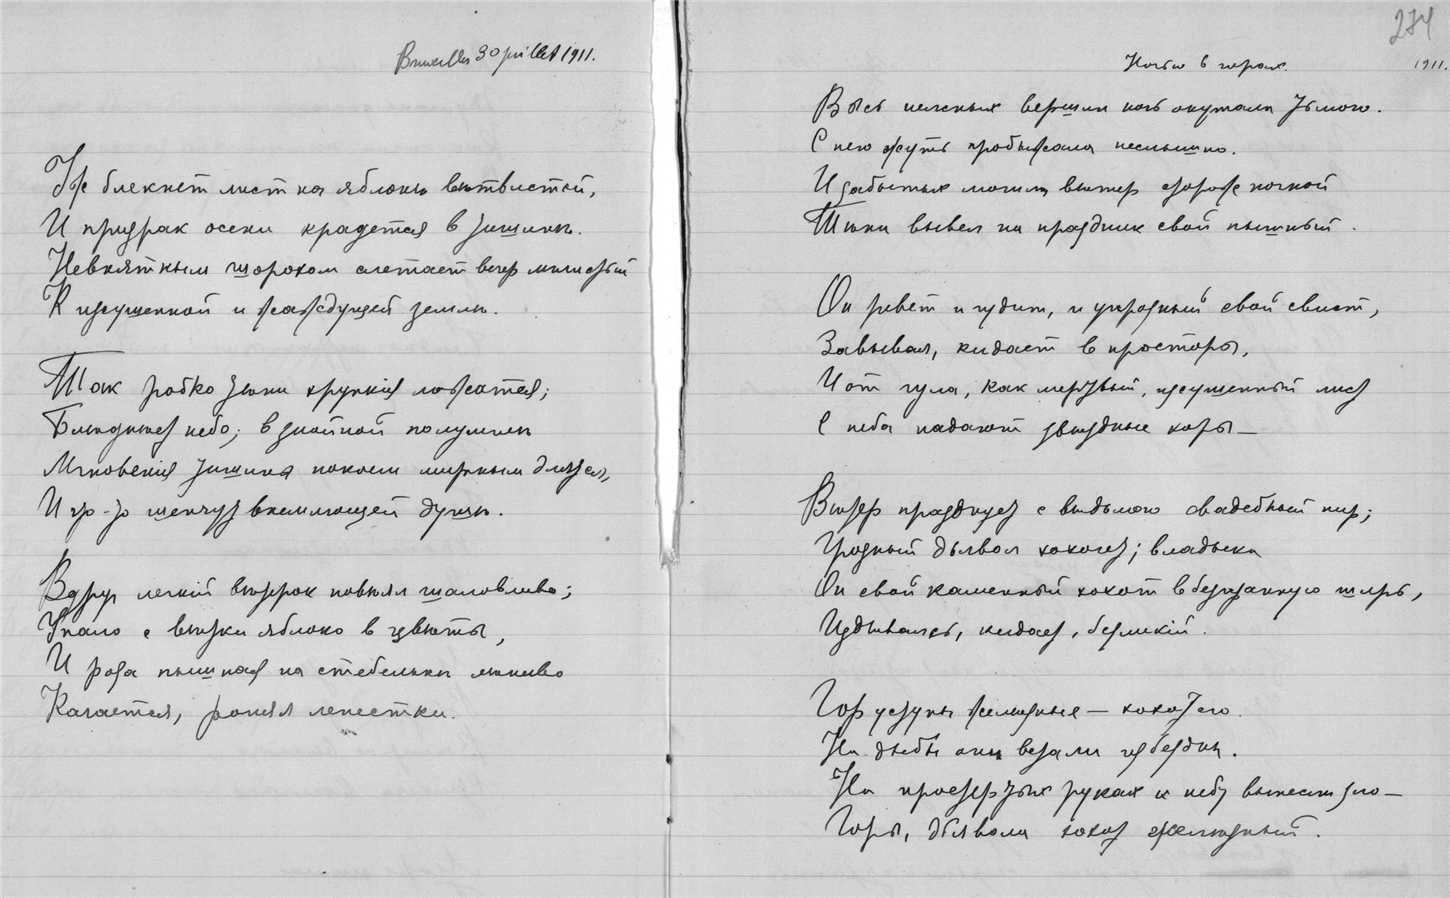 Bruxelles 30 juillet 1911.
Уж блекнет лист на яблонѣ вѣтвистой,
И призрак осени крадется в тишинѣ.
Невнятным шорохом слетает вечер мглистый
К изсушенной и жаждущей землѣ.
Так робко тѣни хрупкія ложатся;
Блѣднѣет небо; в знойной полумглѣ
Мгновенія тишина покоем мирным длится,
И что-то шепчут внемлющей душѣ.
Вдруг легкій вѣтерок повѣял шаловливо;
Упало с вѣтки яблоко в цвѣты,
И роза пышная на стебелькѣ лѣниво
Качается, роняя лепестки.
274
Ночью в горах.
1911.
Высь неясных вершин ночь окутала тьмою.
С нею жуть пробѣжала неслышно.
И забытых могил вѣтер сторож ночной
Тѣни вывел на праздник свой пышный.
Он ревет и гудит, и упрямый свой свист,
Завывая, кидает в просторы,
И от гула, как мертвый, изсушенный лист
С неба падают звѣздные хоры —
Вѣтер празднует с вѣдьмою свадебный пир;
Грозный дьявол хохочет; владыка
Он свой каменный хохот в безгранную ширь,
Издѣваясь, кидает, безликій.
Гор уступы желѣзные — хохот его.
На дыбы они встали из бездны.
На простертых руках к небу вынесли зло —
Горы, дьявола хохот желѣзный.